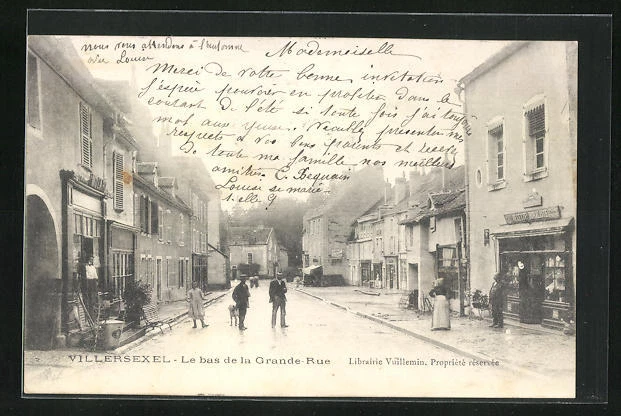 nous vous attendons à l'automne
Louise
Mademoiselle
Merci de votre bonne invitation
j'espère pouvoir en profiter dans le
courant de l'été si toute fois j'ai toujours
mal aux yeux. Veuillez présenter mes
respects à vos bons parents et recevez
de toute ma famille nos meilleures
amitiés
Louise se marie
VILLERSEXEL - Le bas de la Grande-Rue
Librairie Vuillemin, Propriété réservée